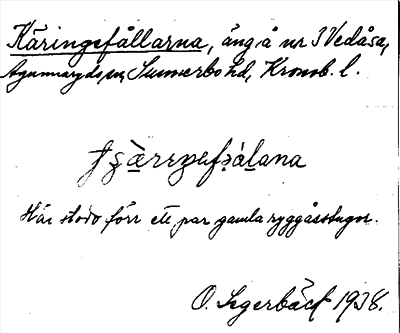 Käringefållarna, äng å nr 3 Vedåsa,
Agunnaryds sn, Sunnerbo hd, Kronob. l.
Här stodo förr ett par gamla ryggåsstugor.
O. Segerbäck 1928.